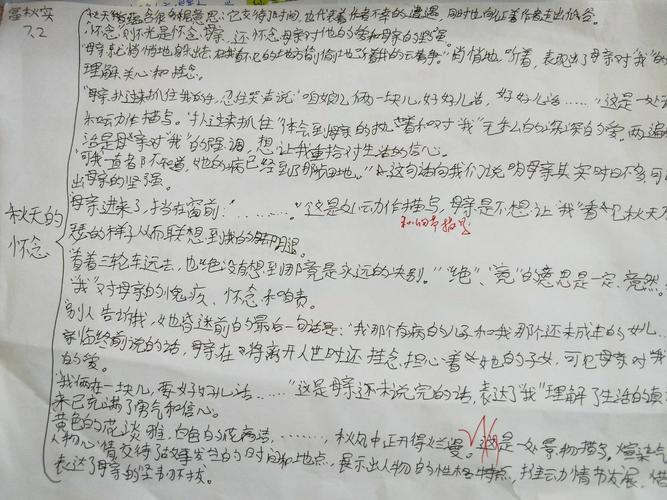 雷秋实
7.2
秋天的
怀念
秋天有着很的很意思:它交待了时间,也代表着作者不幸的遭遇,同时也向征着作者走出低谷。
"怀念"则不光是怀念母亲,还怀念母亲对他的爱和母亲的坚强。
"母亲就悄悄地躲出去,在我看不见的地方偷偷地听着我的动静。"悄悄地""听着,表现出了母亲对"我"的
理解,关心和挂念。
"母亲扑过来抓住我的手,忍住哭声说:"咱娘儿俩一块儿,好好儿活,好好儿活……"这是一处
和动作描写。"扑过来抓住"体会到母亲的 和对"我"无 的深深的爱。两遍
活是母亲对"我"的强调,想让我重拾对生活的信心。
"可我一直都不知道,她的病已经到了那步田地。"这句话向我们说明母亲其实时日不多可
出母亲的坚强。
"母亲进来了,挡在窗前:"………"这是处动作描写,母亲是不想让"我"看见秋天
秋 的 描写
的样子从而联想到我的 。
"看着三轮车远去,也绝没有想到那竟是永远的诀别。""绝"、"竟"的意思是一定、竟然。
"我"对母亲的愧疚、怀念和自责。
"别人告诉我,她昏迷前的最后一句话是:"我那个有病的儿子和我那个还未成年的女儿…
亲临终前说的话,母亲在将离开人世时还挂念、担心着她的子女,可见母亲对"我
的爱。
"我俩在一块儿,要好好儿活……"这是母亲还未说完的话,表达了"我"理解了生活的真
来已充满了勇气和信心。
黄色的花淡雅,白色的花高洁,………,秋风中正开得烂漫。这是一处景物描写。渲染气
人物心情交待了故事发生的时间和地点,展示出人物的性格特点,推动情节发展,借
表达了母亲的坚韧不拔。